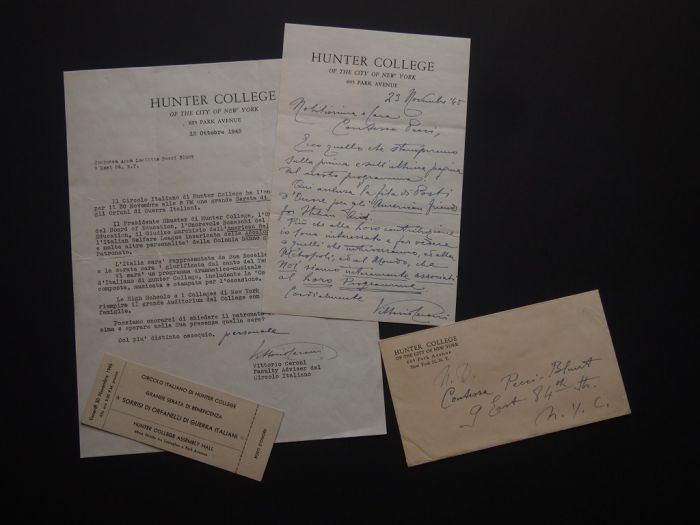 HUNTER COLLEGE
OF THE CITY OF NEW YORK
695 PARK AVENUE
12 Ottobre 1945
Contessa Anna Laetitia Pecci Blunt
9 East 84, N.Y.
Il Circolo Italiano di Hunter College ha l'on
per il 30 Novembre alle 8 PM una grande Serata di
gli Orfani di Guerra Italiani.
Il Presidente Shuster di Hunter College, l'O
del Board of Education, l'Onorevole
Education, il Giudice onorario dell'American
l'Italian Welfare League incaricata della
e molte altre personalita' della Colonia hanno
patronato.
L'Italia sara' rappresentata da Sua Eccelle
e la serata sara' glorificata dal canto del
Vi sara' un programma drammatico-musicale
d'Italiano di Hunter College, includente la
composta, musicata e stampata per l'occasione.
Le High Schools e i Colleges di New York
riempire il grande Auditorium del College con
famiglie.
Possiamo onorarci di chiedere il patronato
sima e sperare nella Sua presenza quella sera?
Col piu' distinto ossequio, personale
Vittorio Ceroni
Vittorio Ceroni
Faculty Adviser del
Circolo Italiano
HUNTER COLLEGE
OF THE CITY OF NEW YORK
695 PARK AVENUE
23 Novembre '45
Nobilissima e cara
Contessa Pecci,
Ecco quello che stamperemo
sulla prima e sull'ultima pagina
del nostro programma.
Qui annessa la lista di Posti
d'Onore per gli "American Friends
for Italian
Più che alla loro contribuzione
io sono interessato a far vedere
a quelli che intervissero, ed alla
Metropoli, ed al Mondo, che
Noi siamo intieramente associati
al Loro Programma.
Cordialmente
Vittorio Ceroni
HUNTER COLLEGE
OF THE CITY OF NEW YORK
695 Park Avenue
New York 21, N. Y.
Contessa Pecci-Blunt
9 East 84th Str.
N.Y.C.
Venerdì 30 Novembre 1945
CIRCOLO ITALIANO DI HUNTER COLLEGE
GRANDE SERATA DI BENEFICENZA
SORRISI DI ORFANELLI DI GUERRA ITALIANI
HUNTER COLLEGE ASSEMBLY HALL